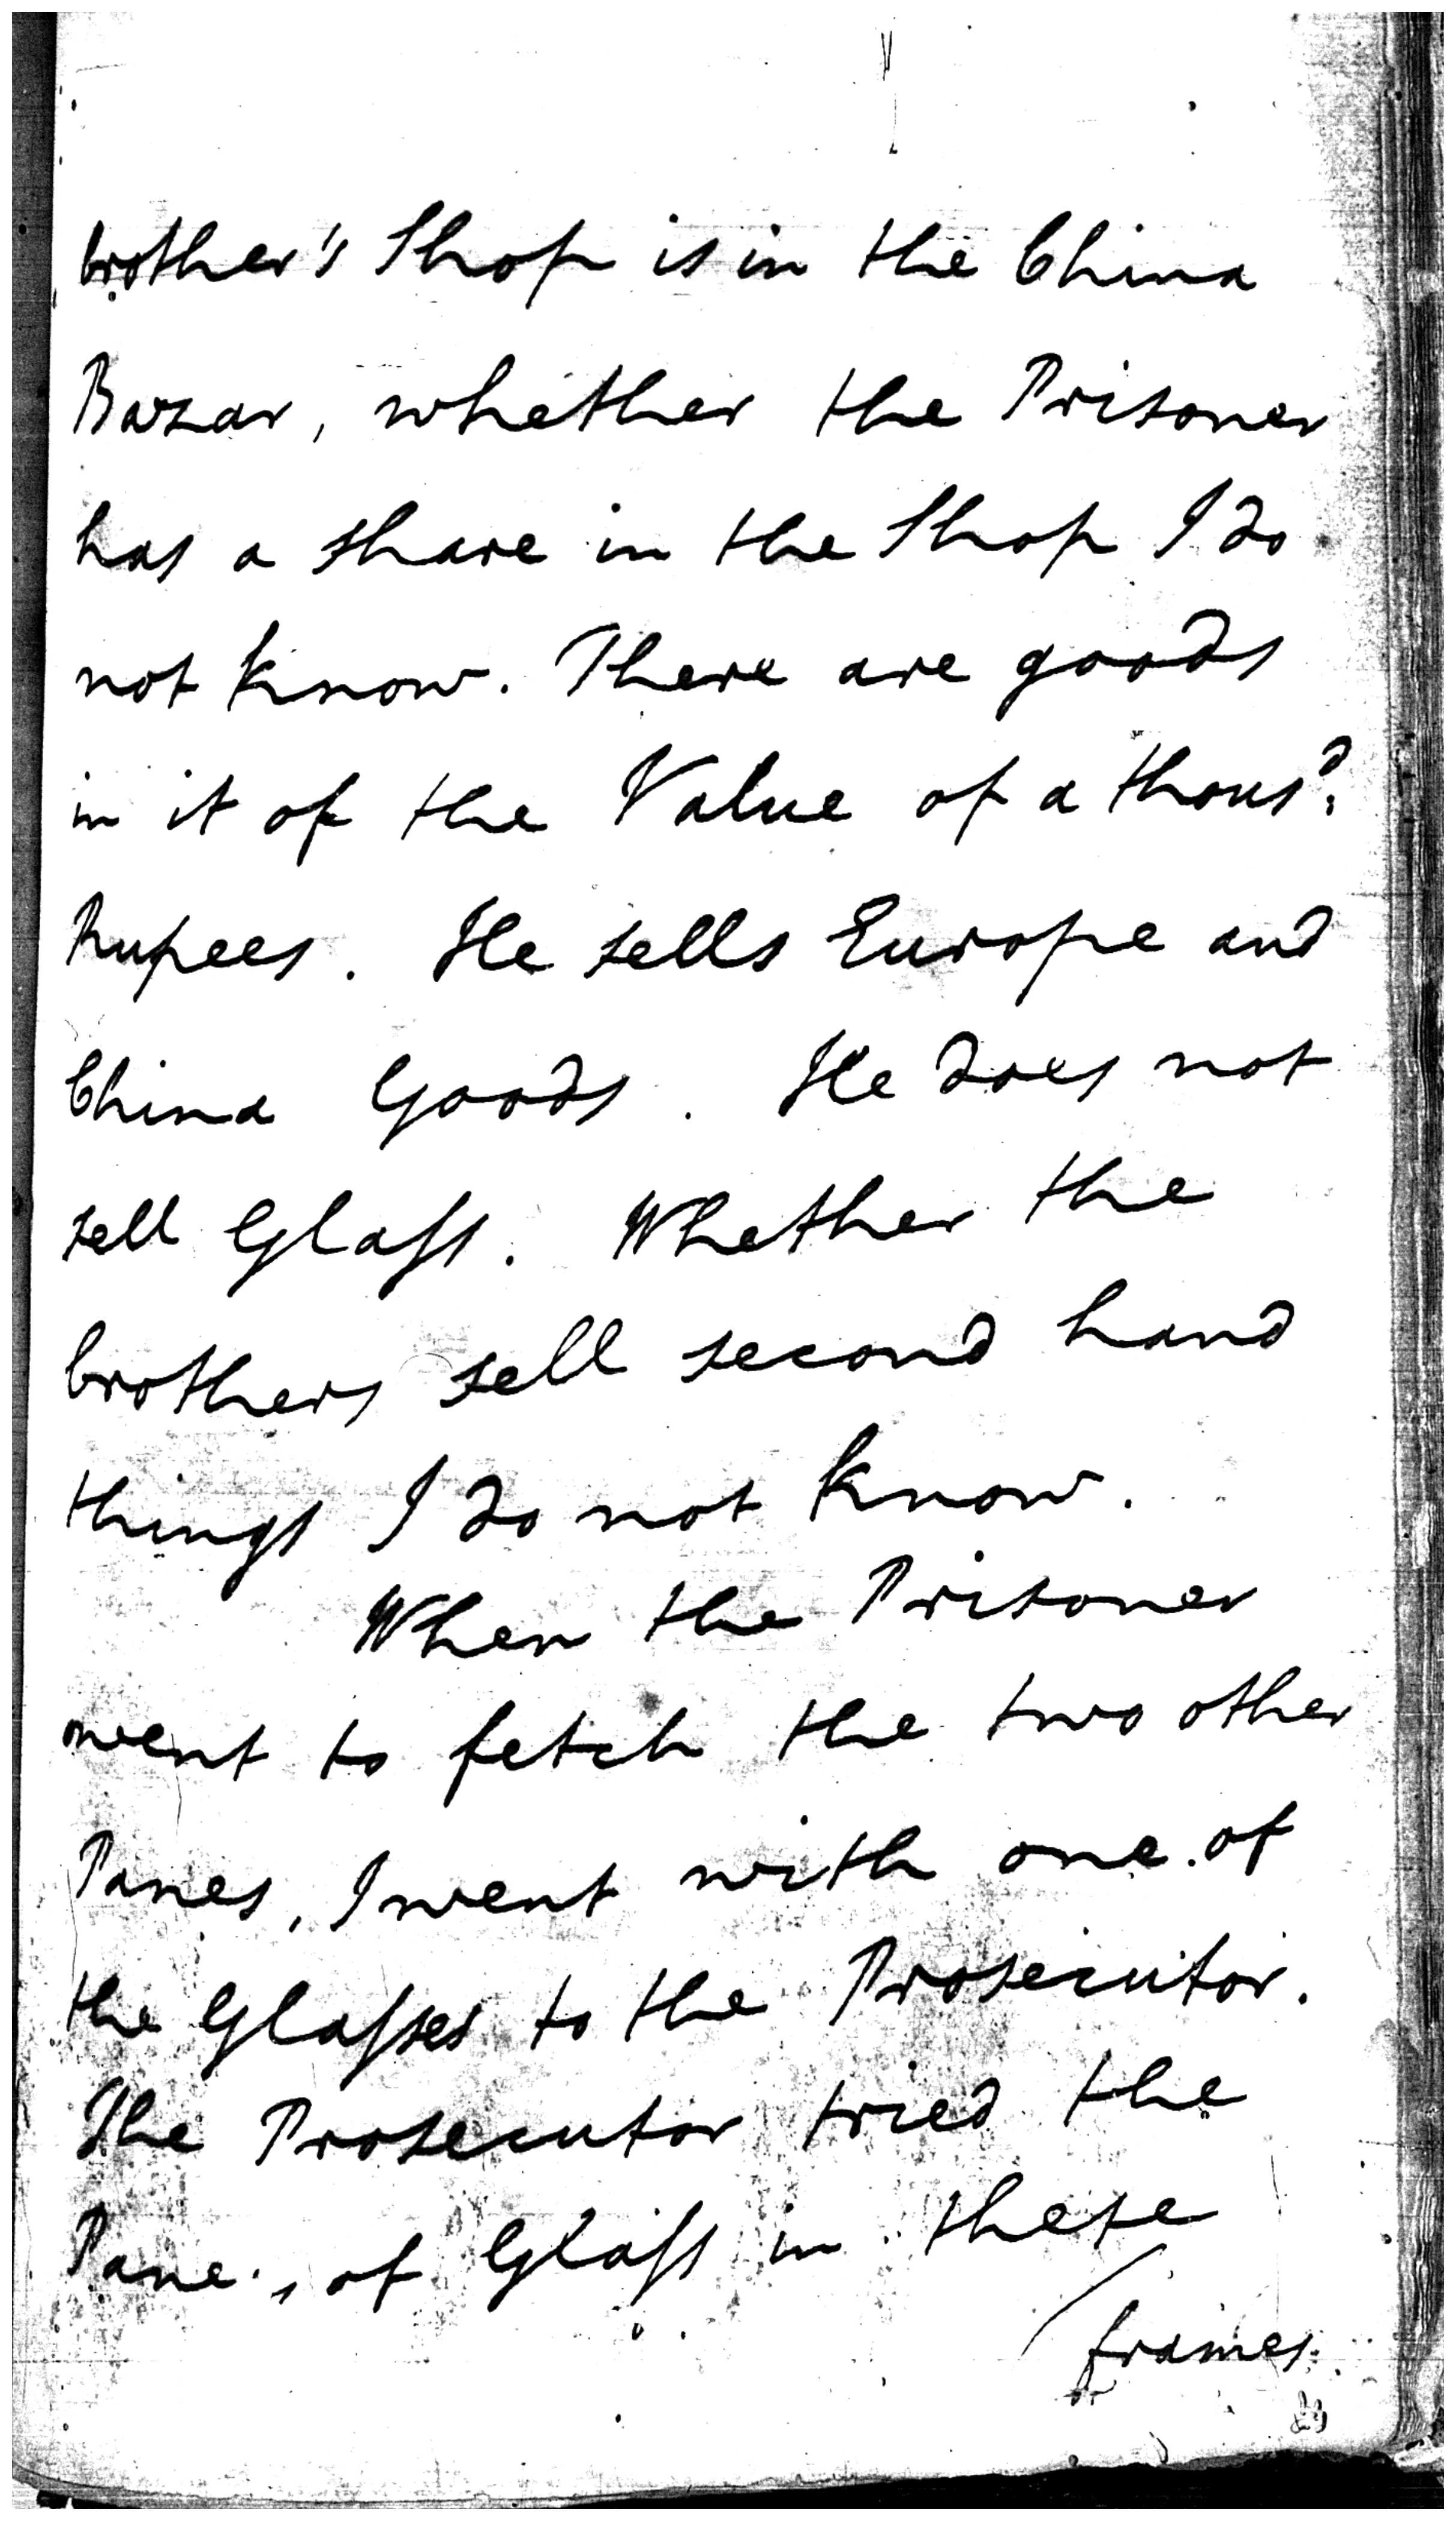 brother's Shop is in the China
Bazar, whether the Prisoner
has a share in the Shop I do
not know. There are goods
in it of the Value of a thous^d.
Rupees. He sells Europe and
China Goods. He does not
sell Glaſs. Whether the
brothers sell second hand
things I do not know.
When the Prisoner
went to fetch the two other
Panes, I went with one of
the Glaſses to the Prosecutor.
The Prosecutor tried the
Pane, of Glaſs in these
frames